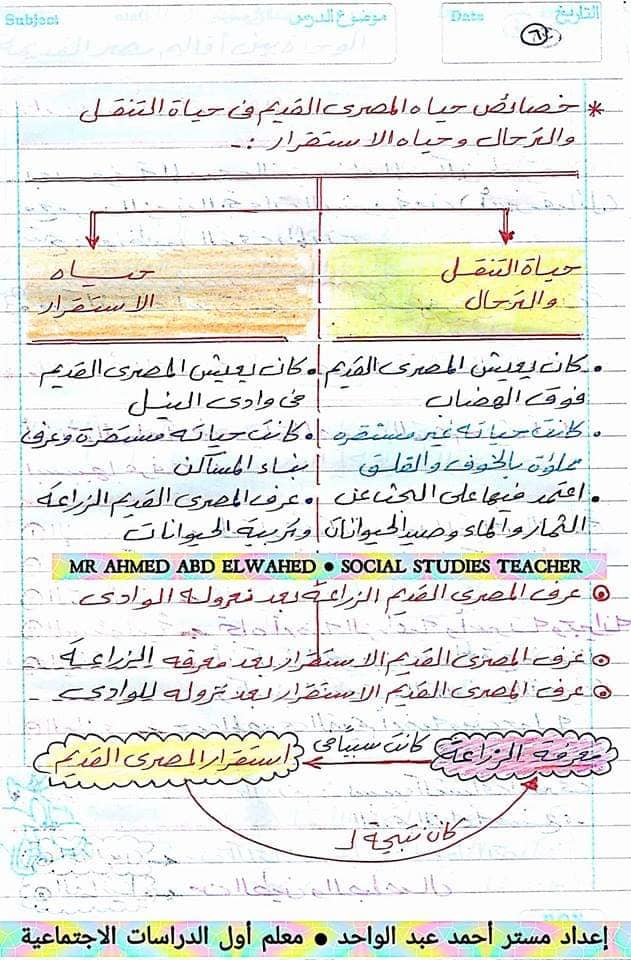 التاريخ
Date
موضوع الدرس
Subject
* خصائص حياه المصرى القديم فى حياة التنقل
والترحال وحياه الاستقرار :ـ
حياة التنقل
والترحال
• كان يعيش المصرى القديم
فوق الهضاب
• كانت حياته غير مستقره
مملؤة بالخوف والقلق
• اعتمد فيها على البحث عن
الثمار والماء وصيد الحيوانات
حياه
الاستقرار
• كان يعيش المصرى القديم
فى وادى النيل
• كانت حياته مستقرة وعرف
بناء المساكن
• عرف المصرى القديم الزراعة
وتربية الحيوانات
MR AHMED ABD ELWAHED ● SOCIAL STUDIES TEACHER
عرف المصرى القديم الزراعة بعد نزوله الوادى.
عرف المصرى القديم الاستقرار بعد معرفه الزراعية
عرف المصرى القديم الاستقرار بعد نزوله للوادى -
معرفه الزراعة
كانت سبباً فى
استقرار المصرى القديم
كان نتيجة لـ
إعداد مستر أحمد عبد الواحد ● معلم أول الدراسات الاجتماعية